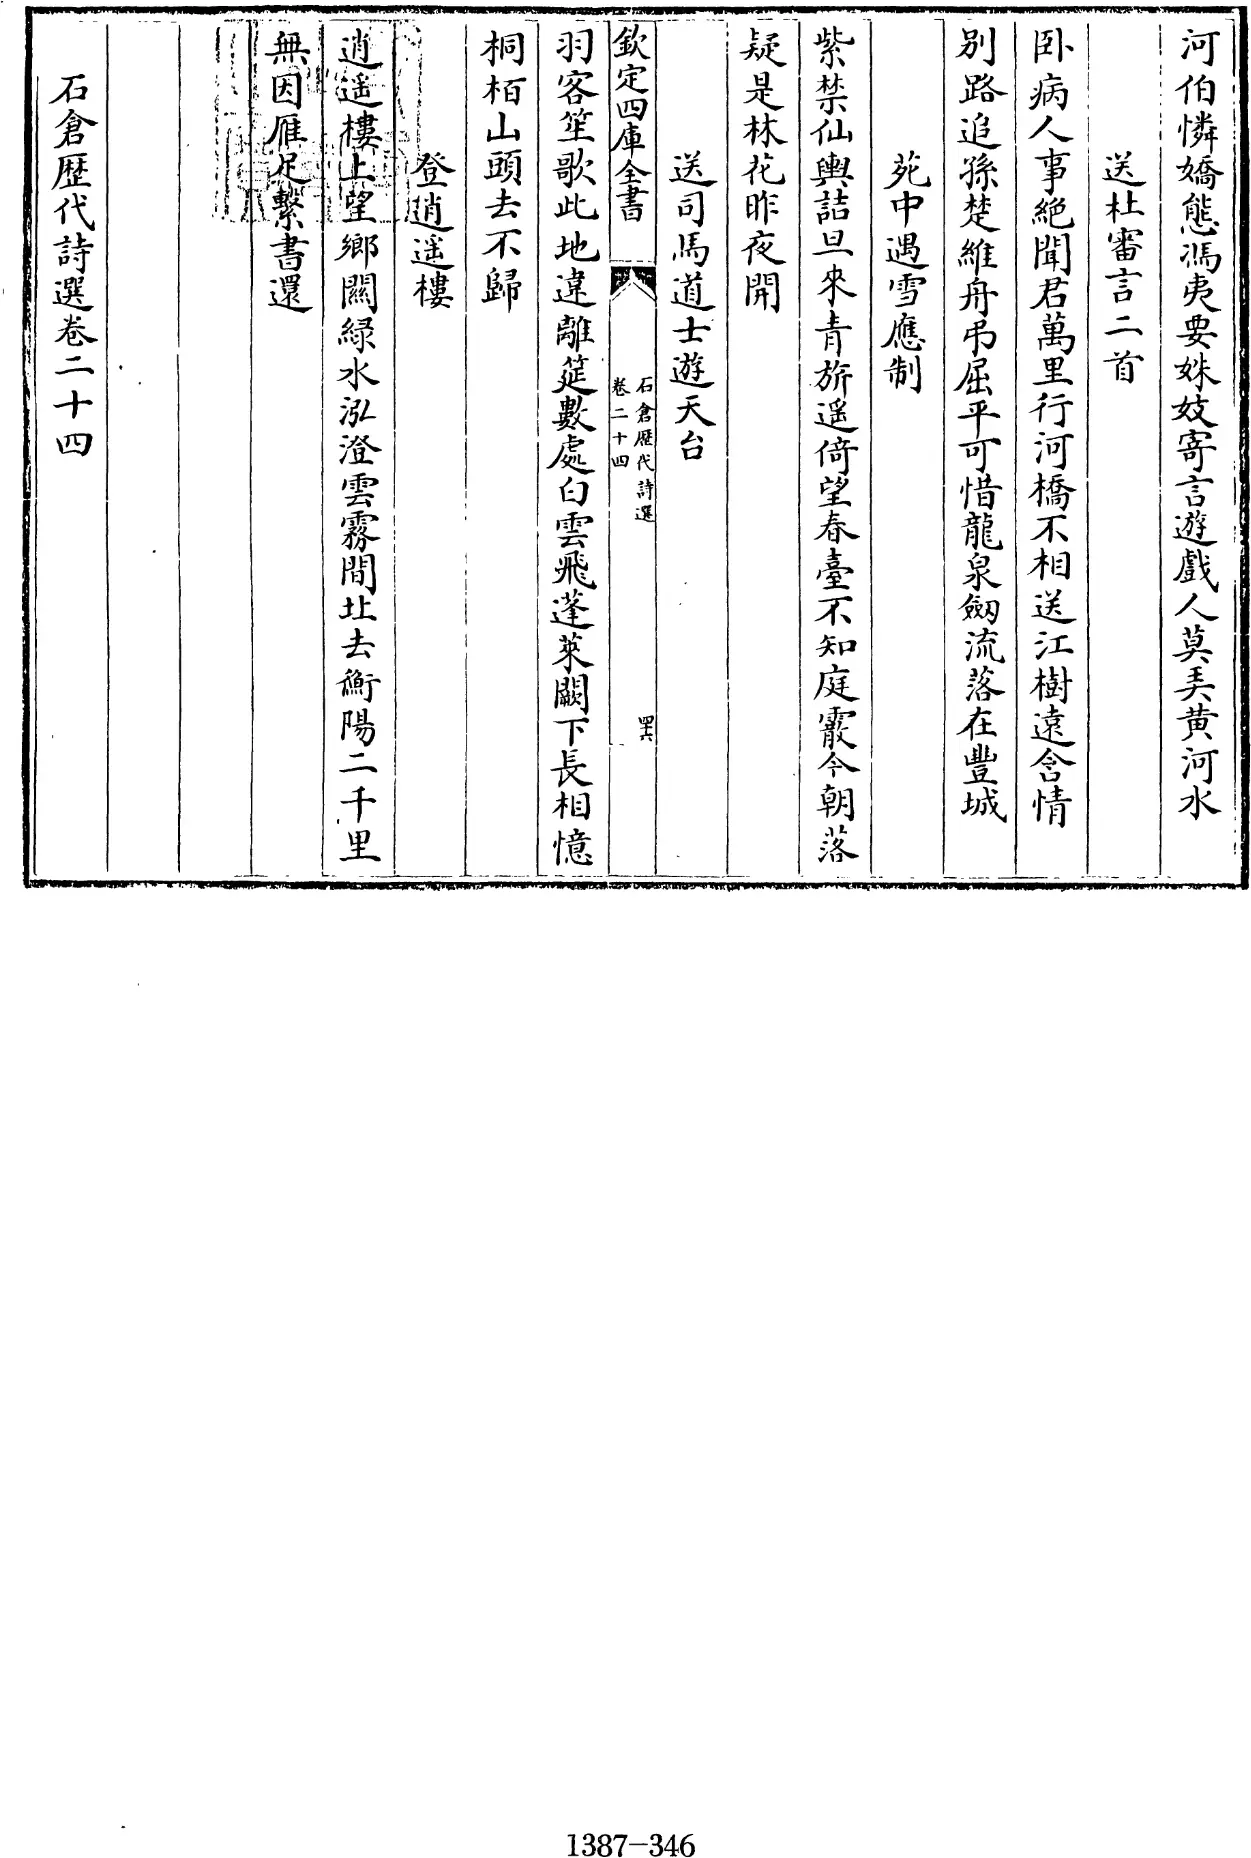 河伯憐嬌態馮夷要姝妓寄言遊戲人莫弄黄河水
送杜審言二首
卧病人事絶聞君萬里行河橋不相送江樹遠含情
别路追孫楚維舟弔屈平可惜龍泉劒流落在豐城
苑中遇雪應制
紫禁仙輿詰旦來青旂遥倚望春臺不知庭霰今朝落
疑是林花昨夜開
送司馬道士遊天台
欽定四庫全書
石倉歴代詩選
卷二十四
羽客笙歌此地違離筵數處白雲飛蓬萊闕下長相憶
桐栢山頭去不歸
登逍遥樓
逍遥樓上望鄉關緑水泓澄雲霧間北去衡陽二千里
無因雁足繫書還
石倉歴代詩選卷二十四
1387-346